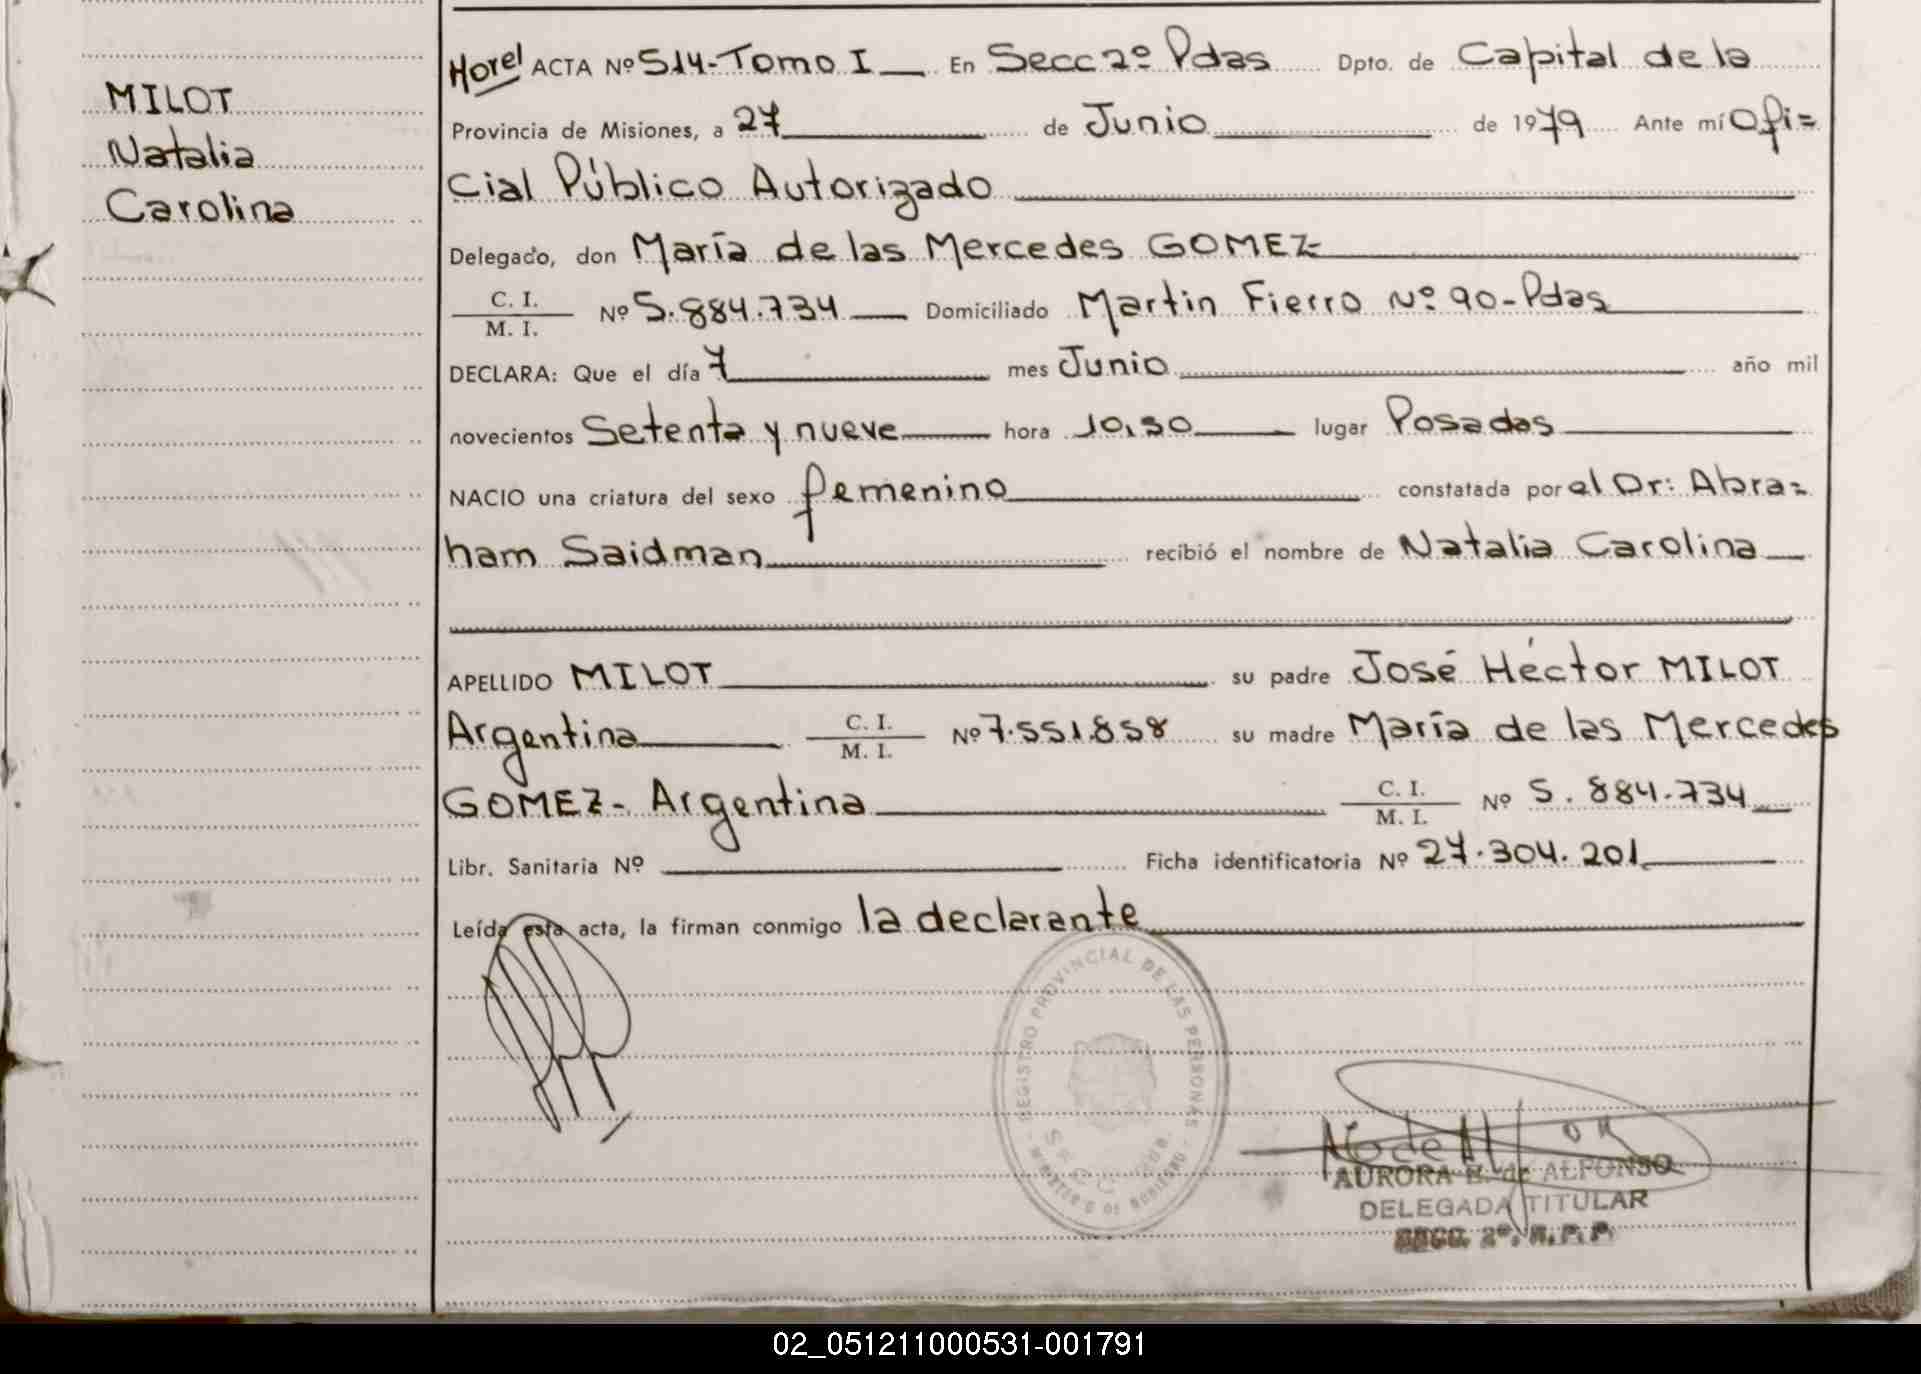 MILOT
Natalia
Carolina
ACTA Nº 514-Tomo I En Secc 2º Pdas Dpto. de Capital de la
Provincia de Misiones, a 27 de Junio de 1979 Ante mí Ofi=
cial Público Autorizado
Delegado, don María de las Mercedes GOMEZ-
C. I.
M. I. Nº 5.884.734 Domiciliado Martin Fierro Nº 90-Pdas
DECLARA: Que el día 7 mes Junio año mil
novecientos Setenta y nueve hora 10,30 lugar Posadas
NACIO una criatura del sexo femenino constatada por el Dr: Abra=
ham Saidman recibió el nombre de Natalia Carolina
APELLIDO MILOT su padre José Héctor MILOT
Argentina C. I. M. I. Nº 7.551.858 su madre María de las Mercedes
GOMEZ- Argentina C. I. M. I. Nº 5.884.734
Libr. Sanitaria Nº Ficha identificatoria Nº 27.304.201
Leída esta acta, la firman conmigo la declarante
REGISTRO PROVINCIAL DE LAS PERSONAS
AURORA E. de ALFONSO
DELEGADA TITULAR
SECC. 2º. R. P. P.
02_051211000531-001791